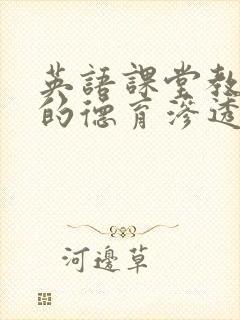 英語課堂教
的德育滲透
河邊草